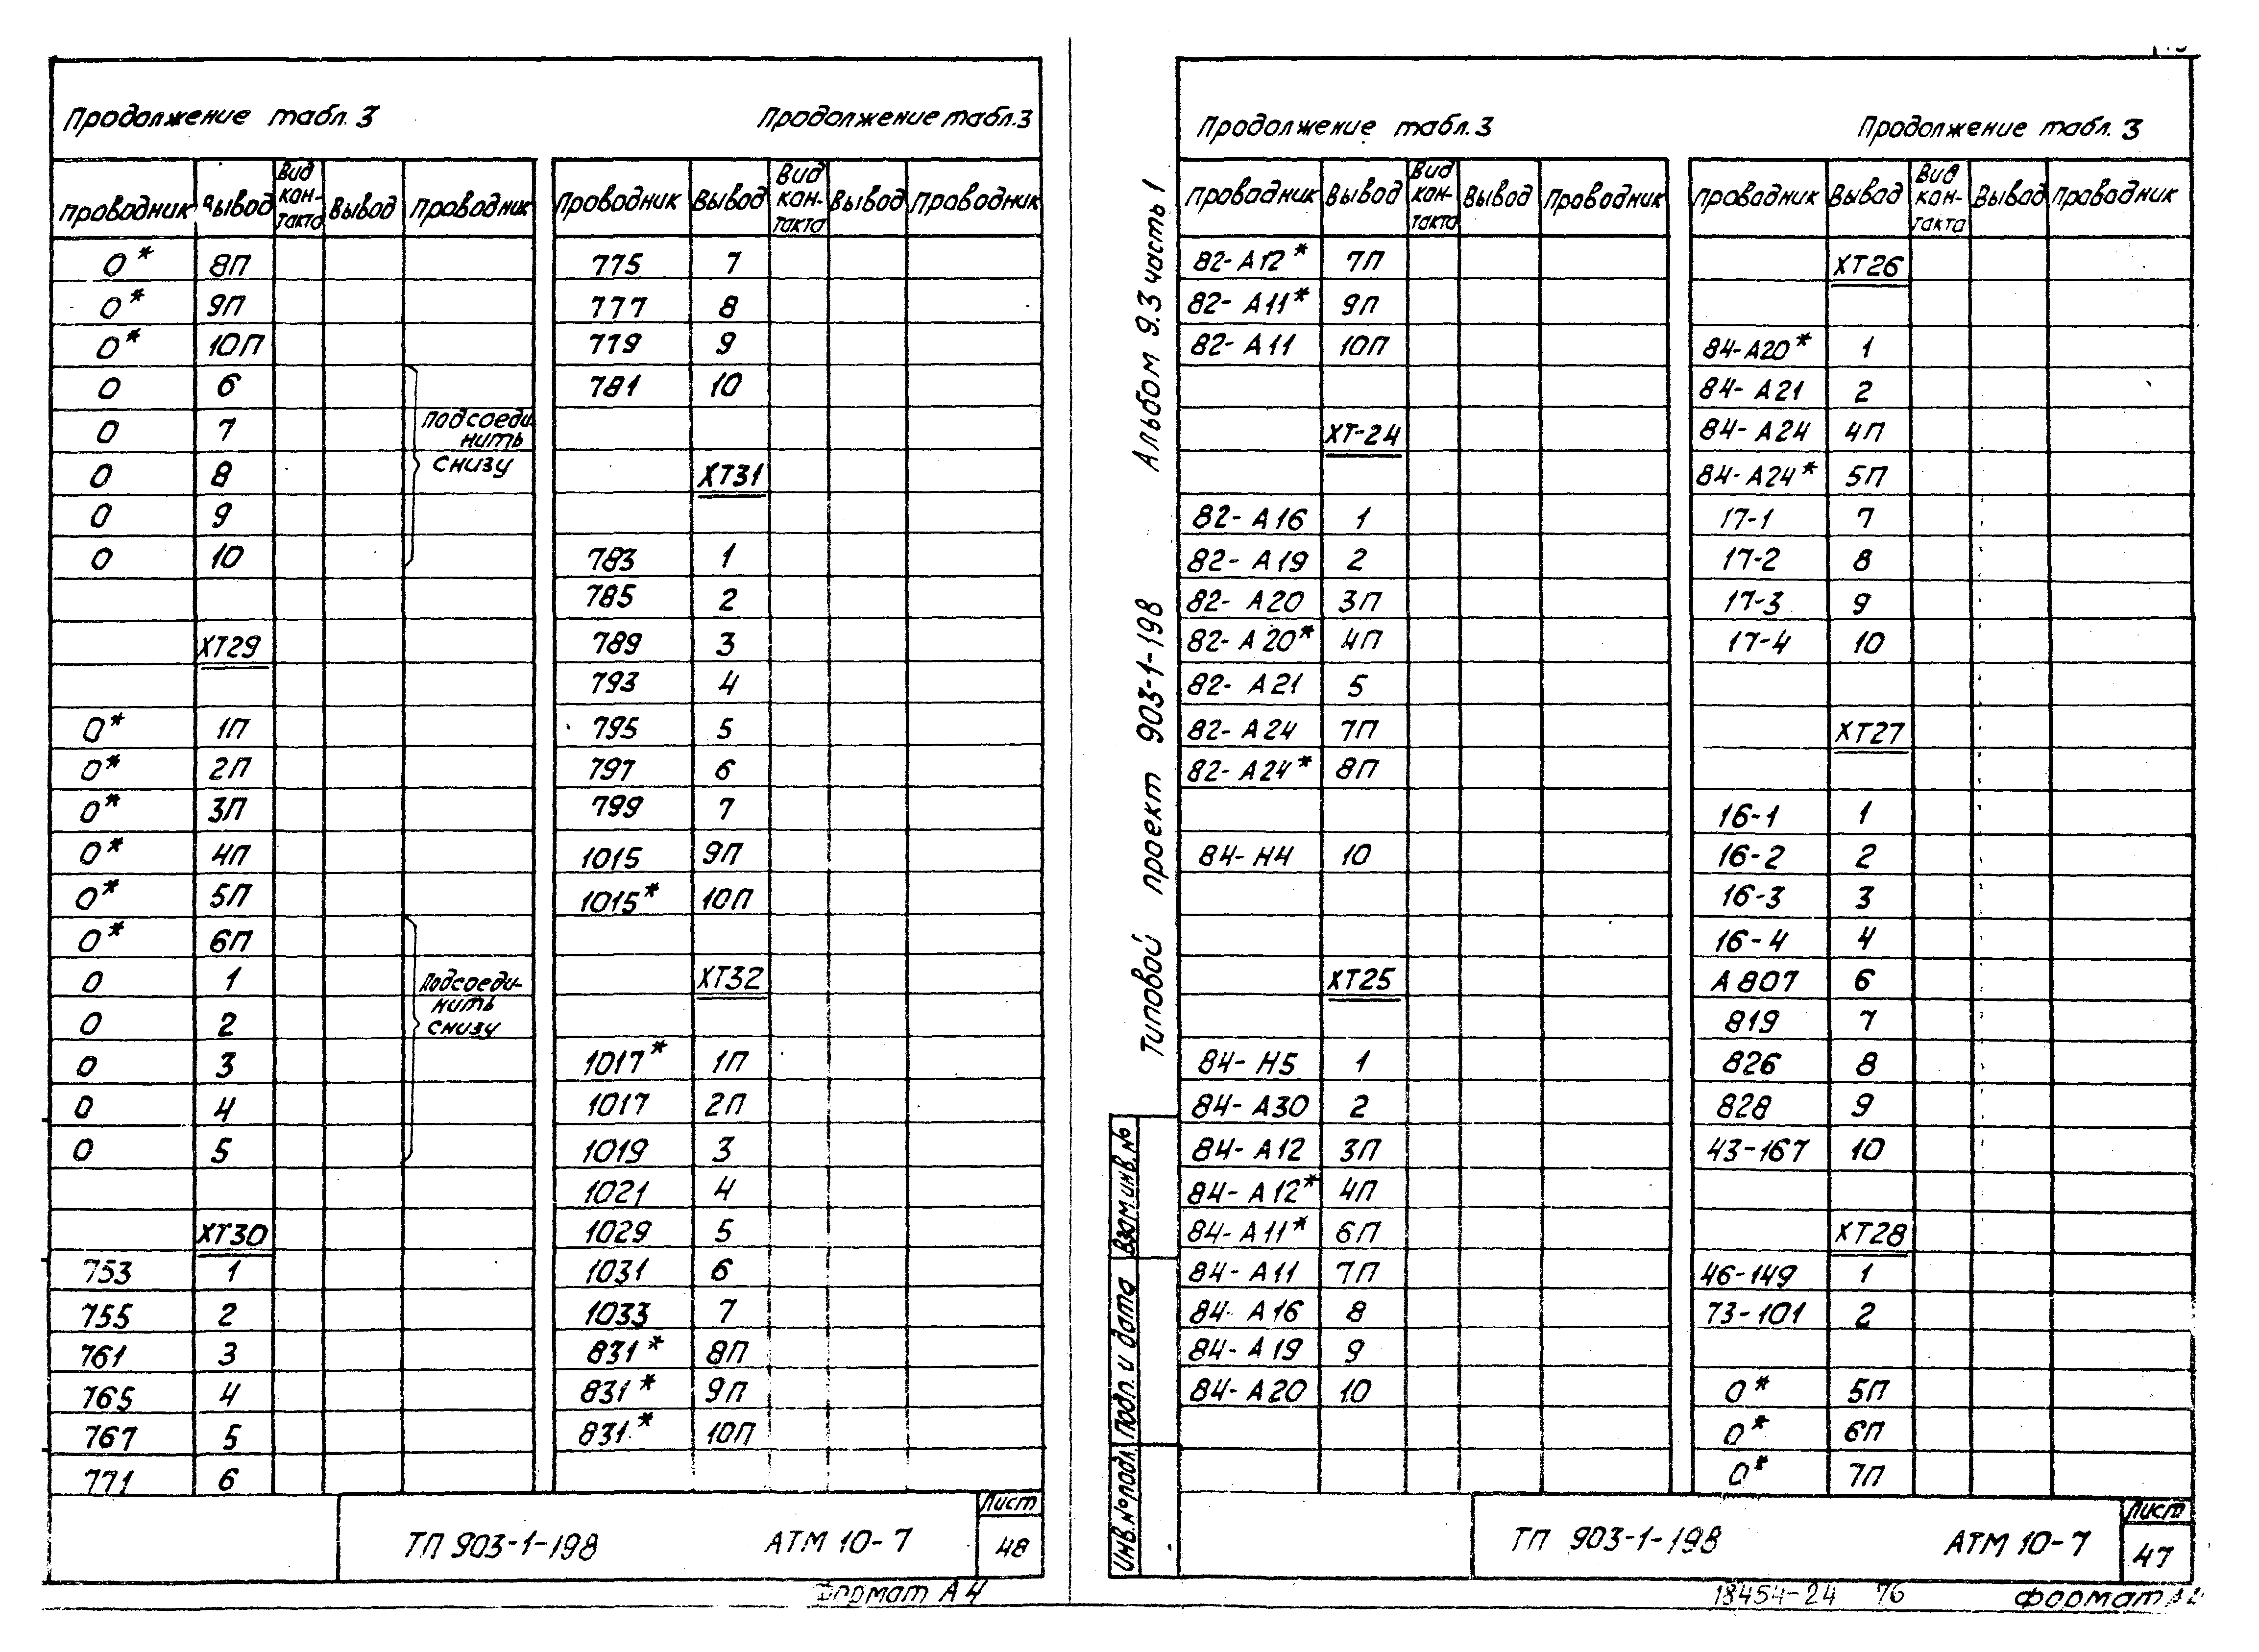 Продолжение табл. 3
Проводник Вывод Вид кон- такта Вывод Проводник
0* 8П
0* 9П
0* 10П
0 6
0 7
0 8
0 9
0 10
Подсоеди-
нить
снизу
XT29
0* 1П
0* 2П
0* 3П
0* 4П
0* 5П
0* 6П
0 1
0 2
0 3
0 4
0 5
Подсоеди-
нить
снизу
XT30
753 1
755 2
761 3
765 4
767 5
771 6
Продолжение табл.3
Проводник Вывод Вид кон- такта Вывод Проводник
775 7
777 8
779 9
781 10
XT31
783 1
785 2
789 3
793 4
795 5
797 6
799 7
1015 9П
1015* 10П
XT32
1017* 1П
1017 2П
1019 3
1021 4
1029 5
1031 6
1033 7
831* 8П
831* 9П
831* 10П
ТП 903-1-198 АТМ 10-7
Лист
48
Формат А4
Альбом 9.3 часть 1
Типовой проект 903-1-198
Взам.инв.№
Подп. и дата
Инв.№подл
Продолжение табл.3
Проводник Вывод Вид кон- такта Вывод Проводник
82-А12* 7П
82-А11* 9П
82-А11 10П
XT-24
82-А16 1
82-А19 2
82-А20 3П
82-А20* 4П
82-А21 5
82-А24 7П
82-А24* 8П
84-Н4 10
XT25
84-Н5 1
84-А30 2
84-А12 3П
84-А12* 4П
84-А11* 6П
84-А11 7П
84-А16 8
84-А19 9
84-А20 10
Продолжение табл. 3
Проводник Вывод Вид кон- такта Вывод Проводник
XT26
84-А20* 1
84-А21 2
84-А24 4П
84-А24* 5П
17-1 7
17-2 8
17-3 9
17-4 10
XT27
16-1 1
16-2 2
16-3 3
16-4 4
А807 6
819 7
826 8
828 9
43-167 10
XT28
46-149 1
73-101 2
0* 5П
0* 6П
0* 7П
ТП 903-1-198 АТМ 10-7
Лист
47
18454-24 76
Формат